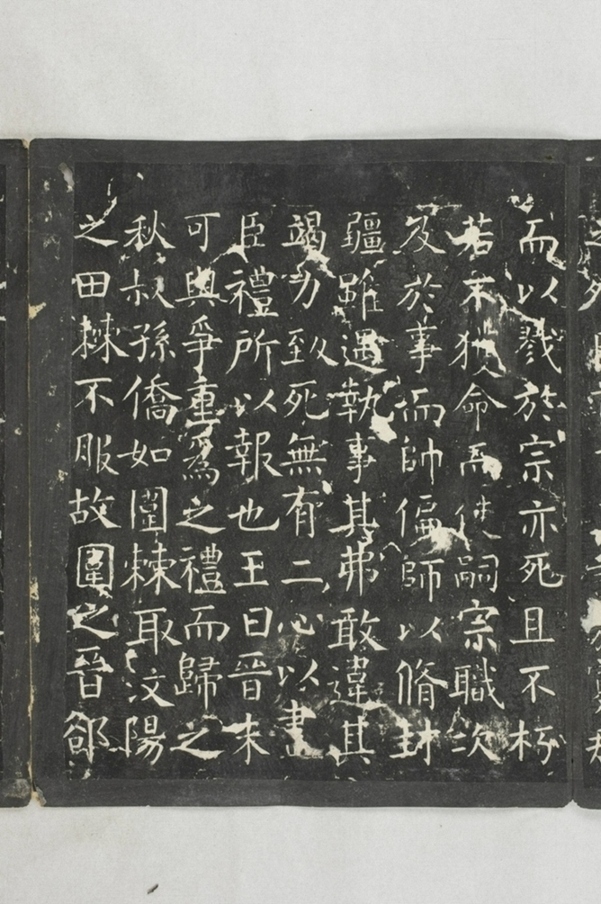 而以戮於宗亦死且不朽
若不獲命而使嗣宗職次
及於事而帥偏師以脩封
疆雖遇執事其弗敢違其
竭力致死無有二心以盡
臣禮所以報也王曰晉未
可與爭重為之禮而歸之
秋叔孫僑如圍棘取汶陽
之田棘不服故圍之晉郤